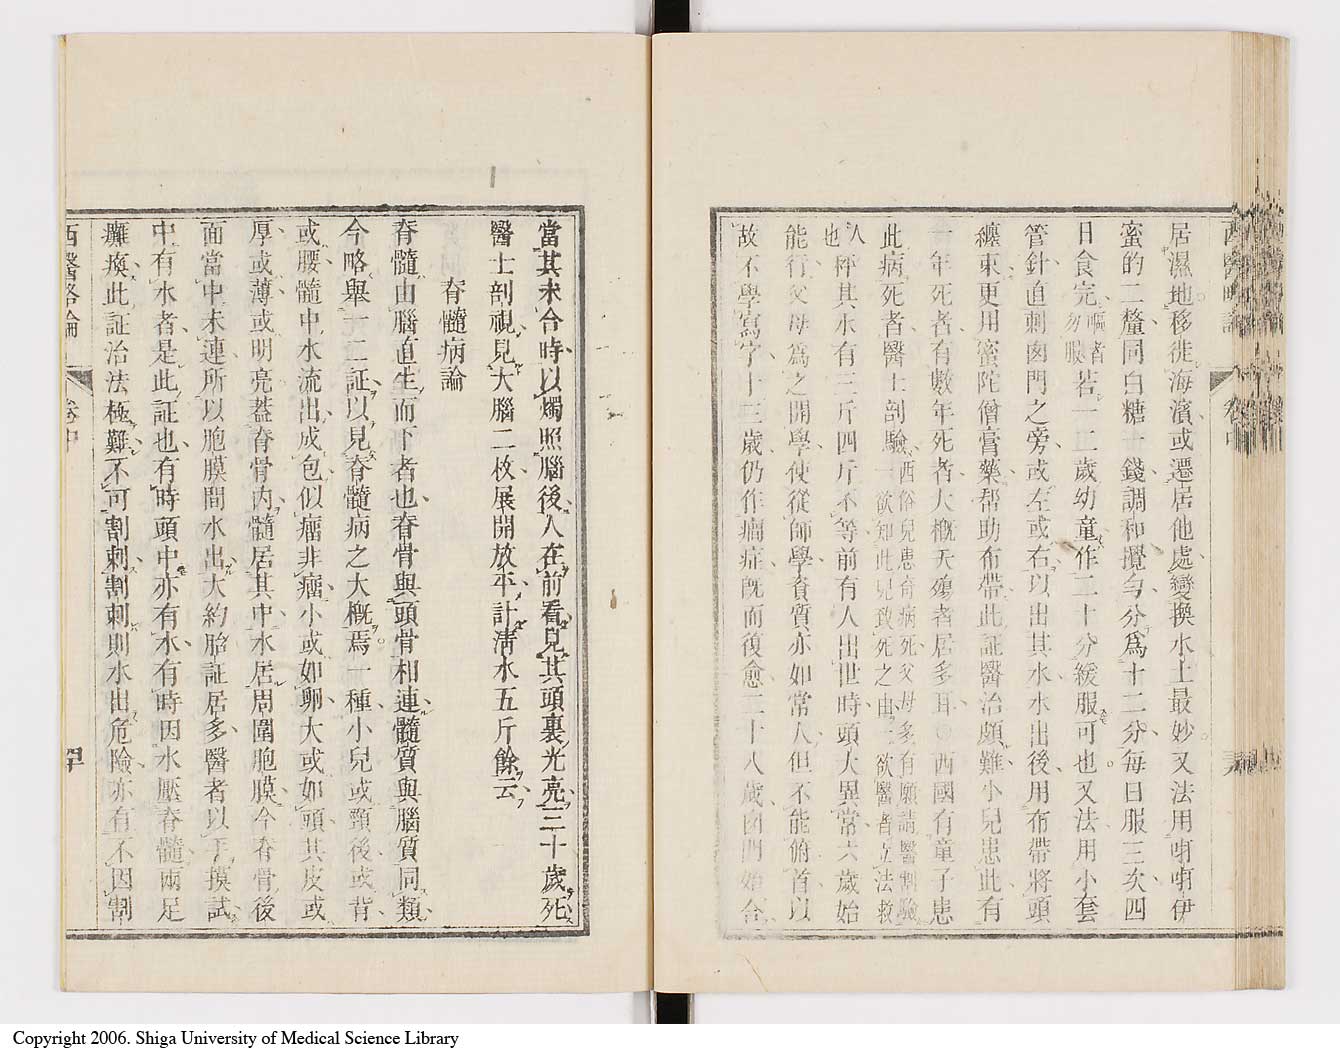 居濕地移徙海濱或遷居他處變換水土最妙又法用哬哬伊
蜜的二釐同白糖一錢調和攪勻分爲十二分每日服三次四
日食完嘔者勿服若一二歲幼童作二十分緩服可也又法用小套
管針直刺囟門之旁或左或右以出其水水出後用布帶將頭
纏束更用蜜陀僧膏藥帮助布帶此証醫治頗難小兒患此有
一年死者有數年死者大概夭殤者居多耳○西國有童子患
此病死者醫士剖驗西俗兒患奇病死父母多有願請醫割驗一欲知此兒致死之由二欲醫者立法救
人也秤其水有三斤四斤不等前有人出世時頭大異常六歲始
能行父母爲之開學使從師學資質亦如常人但不能俯首以
故不學寫字十三歲仍作癎症旣而復愈二十八歲囟門始合
當其未合時以燭照腦後人在前看見其頭裏光亮三十歲死
醫士剖視見大腦二枚展開放平計淸水五斤餘云
脊髓病論
脊髓由腦直生而下者也脊骨與頭骨相連髓質與腦質同類
今略舉一二証以見脊髓病之大槪焉一種小兒或頸後或背
或腰髓中水流出成包似瘤非瘤小或如卵大或如頭其皮或
厚或薄或明亮葢脊骨內髓居其中水居周圍胞膜今脊骨後
面當中未連所以胞膜間水出大約胎証居多醫者以手摸試
中有水者是此証也有時頭中亦有水有時因水壓脊髓兩足
癱瘓此証治法極難不可割刺割刺則水出危險亦有不因割
西醫略論
卷中
Copyright 2006. Shiga University of Medical Science Library